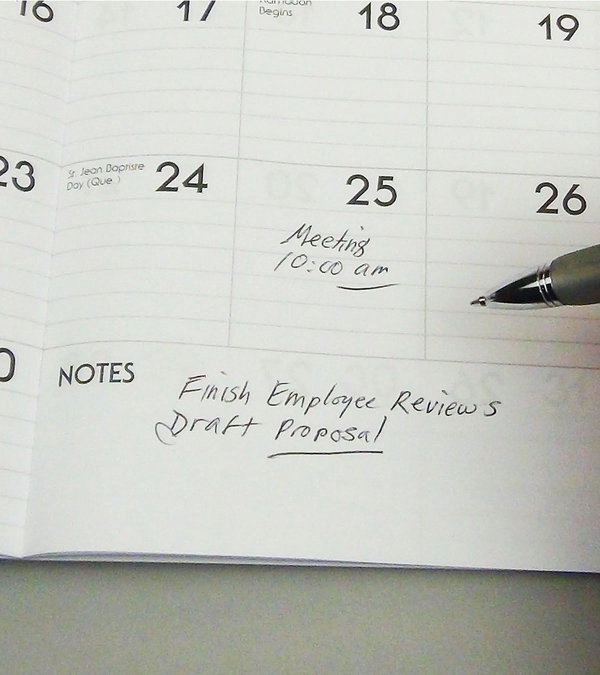 16
17
Ramadan
Begins
18
19
23
St. Jean Baptiste
Day (Que.)
24
25
26
Meeting
10:00 am
0
NOTES
Finish Employee Reviews
Draft Proposal